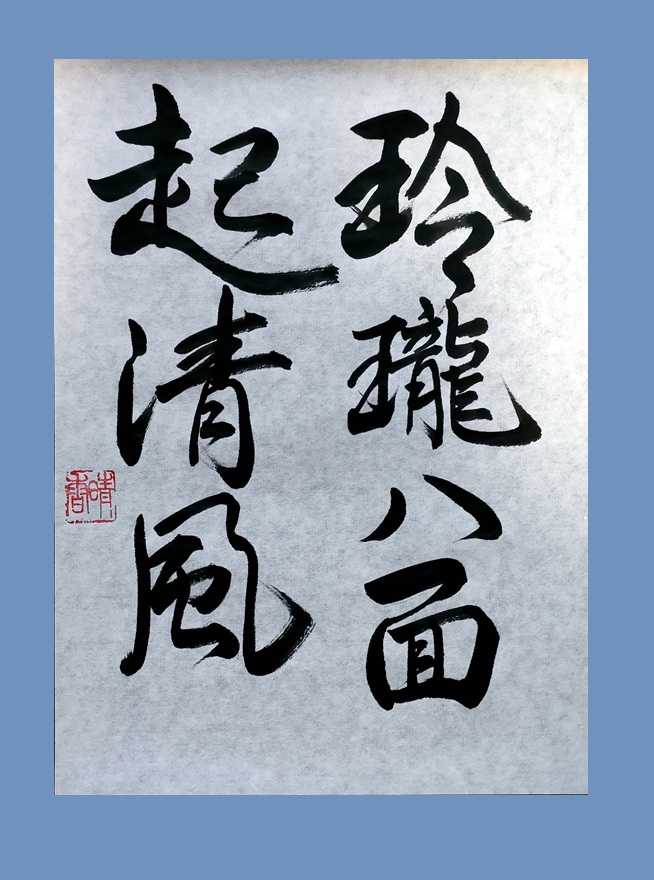 玲瓏八面
起清風
晴香